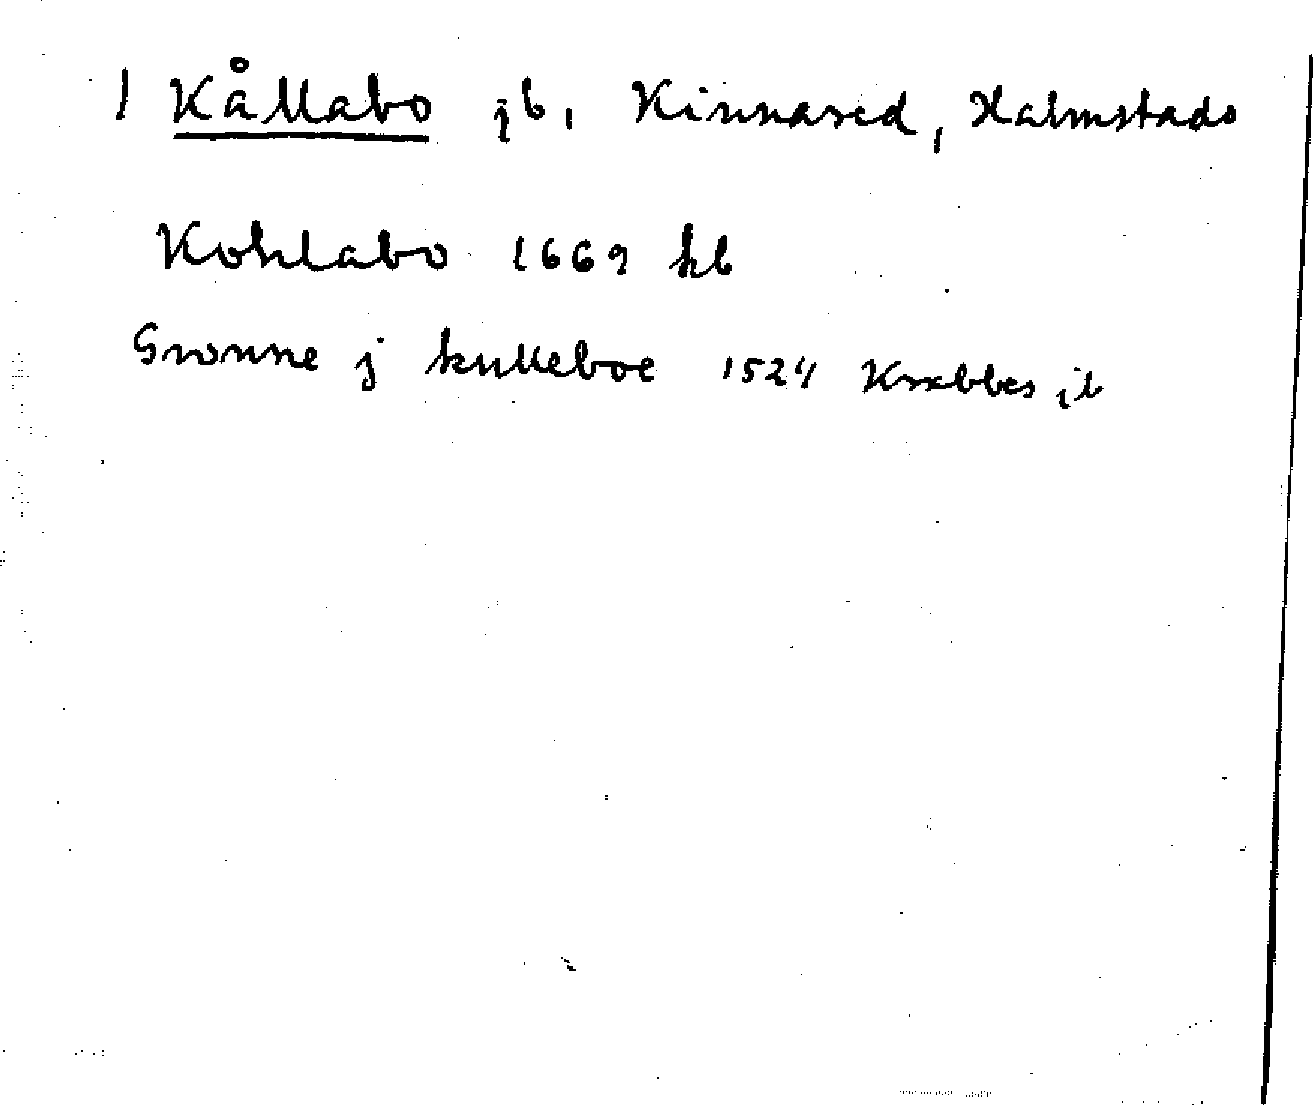 1 Kållabo jb, Kinnared, Halmstads
Kohlabo 1669 kb
Gronne j kulleboe 1524 Krabbes jb